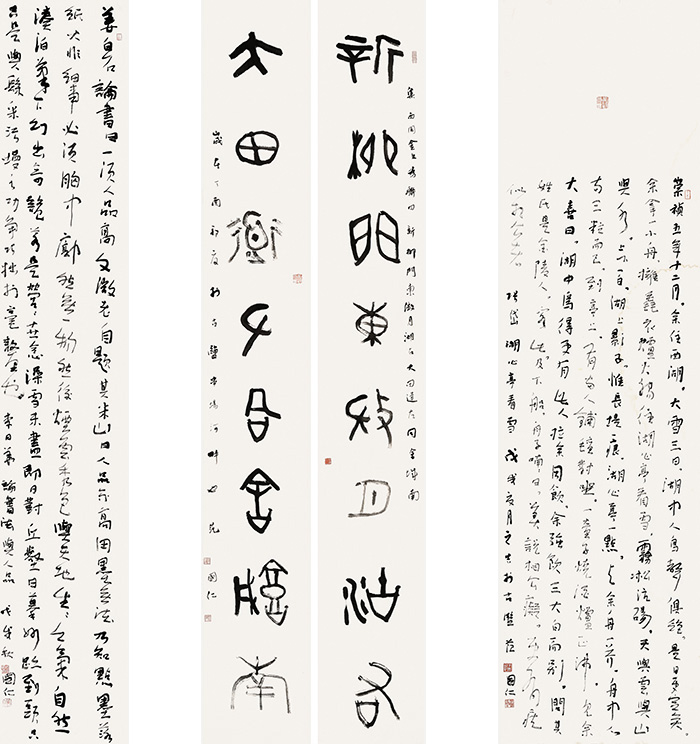 崇禎五年十二月,余住西湖。大雪三日,湖中人鳥聲俱絕。是日更定矣,
余拏一小舟,擁毳衣爐火,獨往湖心亭看雪。霧凇沆碭,天與雲與山
與水,上下一白。湖上影子,惟長堤一痕,湖心亭一點,與余舟一芥,舟中人
兩三粒而已。到亭上,有兩人鋪氈對坐,一童子燒酒爐正沸。見余
大喜曰,湖中焉得更有此人,拉余同飲,余強飲三大白而別。問其
姓氏是金陵人,客此。及下船,舟子喃喃曰,莫說相公癡,更有癡
似相公者 張岱 湖心亭看雪 戊戌夏月之吉於古鹽 國仁
集西周金文 新柳門東微月湖右大田 左同舍城南
新柳門東微月湖右
大田衡左同舍城南
歲在丁酉初夏於古鹽串場河畔 國仁
姜白石論書曰一須人品高文徵老自題其米山曰人品不高用墨無法乃知點墨落
紙大非細事必須胸中廓然無一物然後煙雲秀色與天地生生之氣自然
湊泊筆下幻出奇詭若是營營世念澡雪未盡即日對丘壑日摹妙蹟到頭只
只是與髹采圬墁之工爭巧拙於毫釐也 李日華 論書法與人品 戊戌秋 國仁